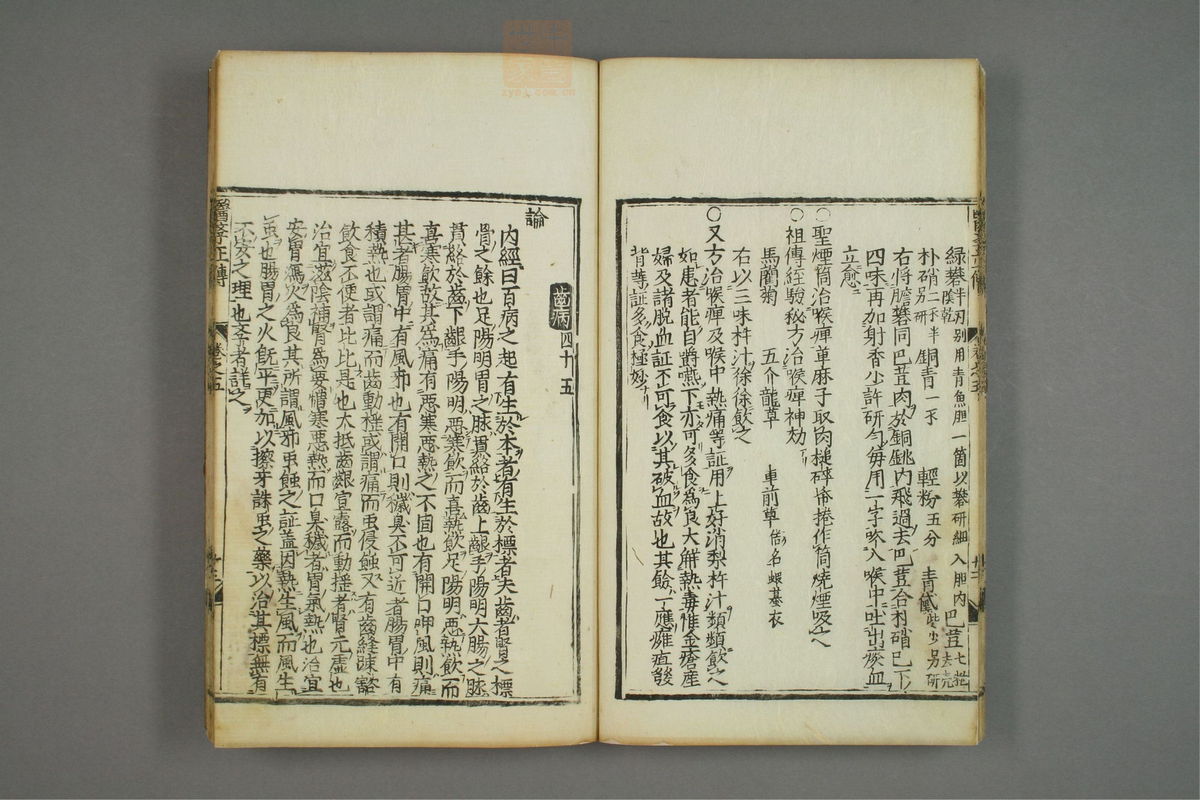 綠礬半刃別用青魚胆一箇以礬研細入胆内陰乾 巴荳七粒去壳
朴硝二爻半別研 銅青一爻 輕粉五分 青黛些少另研
右將膽礬同巴荳肉於銅銚内飛過去巴荳合朴硝已下
四味再加射香少許研勻每用一字吹入喉中吐出痰血
立愈
○聖煙筒治喉痺草麻子取肉槌碎帋捲作筒燒煙吸之
○祖傳經驗秘方治喉痺神効
馬藺菊 五介龍草 車前草俗名蝦蟇衣
右以三味杵汁徐徐飲之
○又方治喉痺及喉中熱痛等証用上好消梨杵汁頻頻飲之
如患者能自嚼嚥下亦可多食為良大觧熱毒惟金瘡産
婦及諸脫血証不可食以其破血故也其餘一應癰疽發
背等証多食極妙
齒病四十五
論
内經曰百病之起有生於本者有生於標者夫齒者腎之標
骨之餘也足陽明胃之脉貫絡於齒上齦手陽明大腸之脉
貫絡於齒下齦手陽明惡寒飲而喜熱飲足陽明惡熱飲而
喜寒飲故其為痛有惡寒惡熱之不同也有開口呷風則痛
甚者腸胃中有風邪也有開口則穢臭不可近者腸胃中有
積熱也或謂痛而齒動摇或謂痛而虫侵蝕又有齒縫疎豁
飲食不便者比比是也大抵齒齦宣露而動揺者腎元虛也
治宜滋陰補腎為要憎寒惡熱而口臭穢者胃氣熱也治宜
安胃瀉火為良其所謂風邪虫蝕之証盖因熱生風而風生
虫也腸胃之火旣平更加以擦牙誅虫之藥以治其標無有
不安之理也斈者詳之
醫斈正傳
卷之五